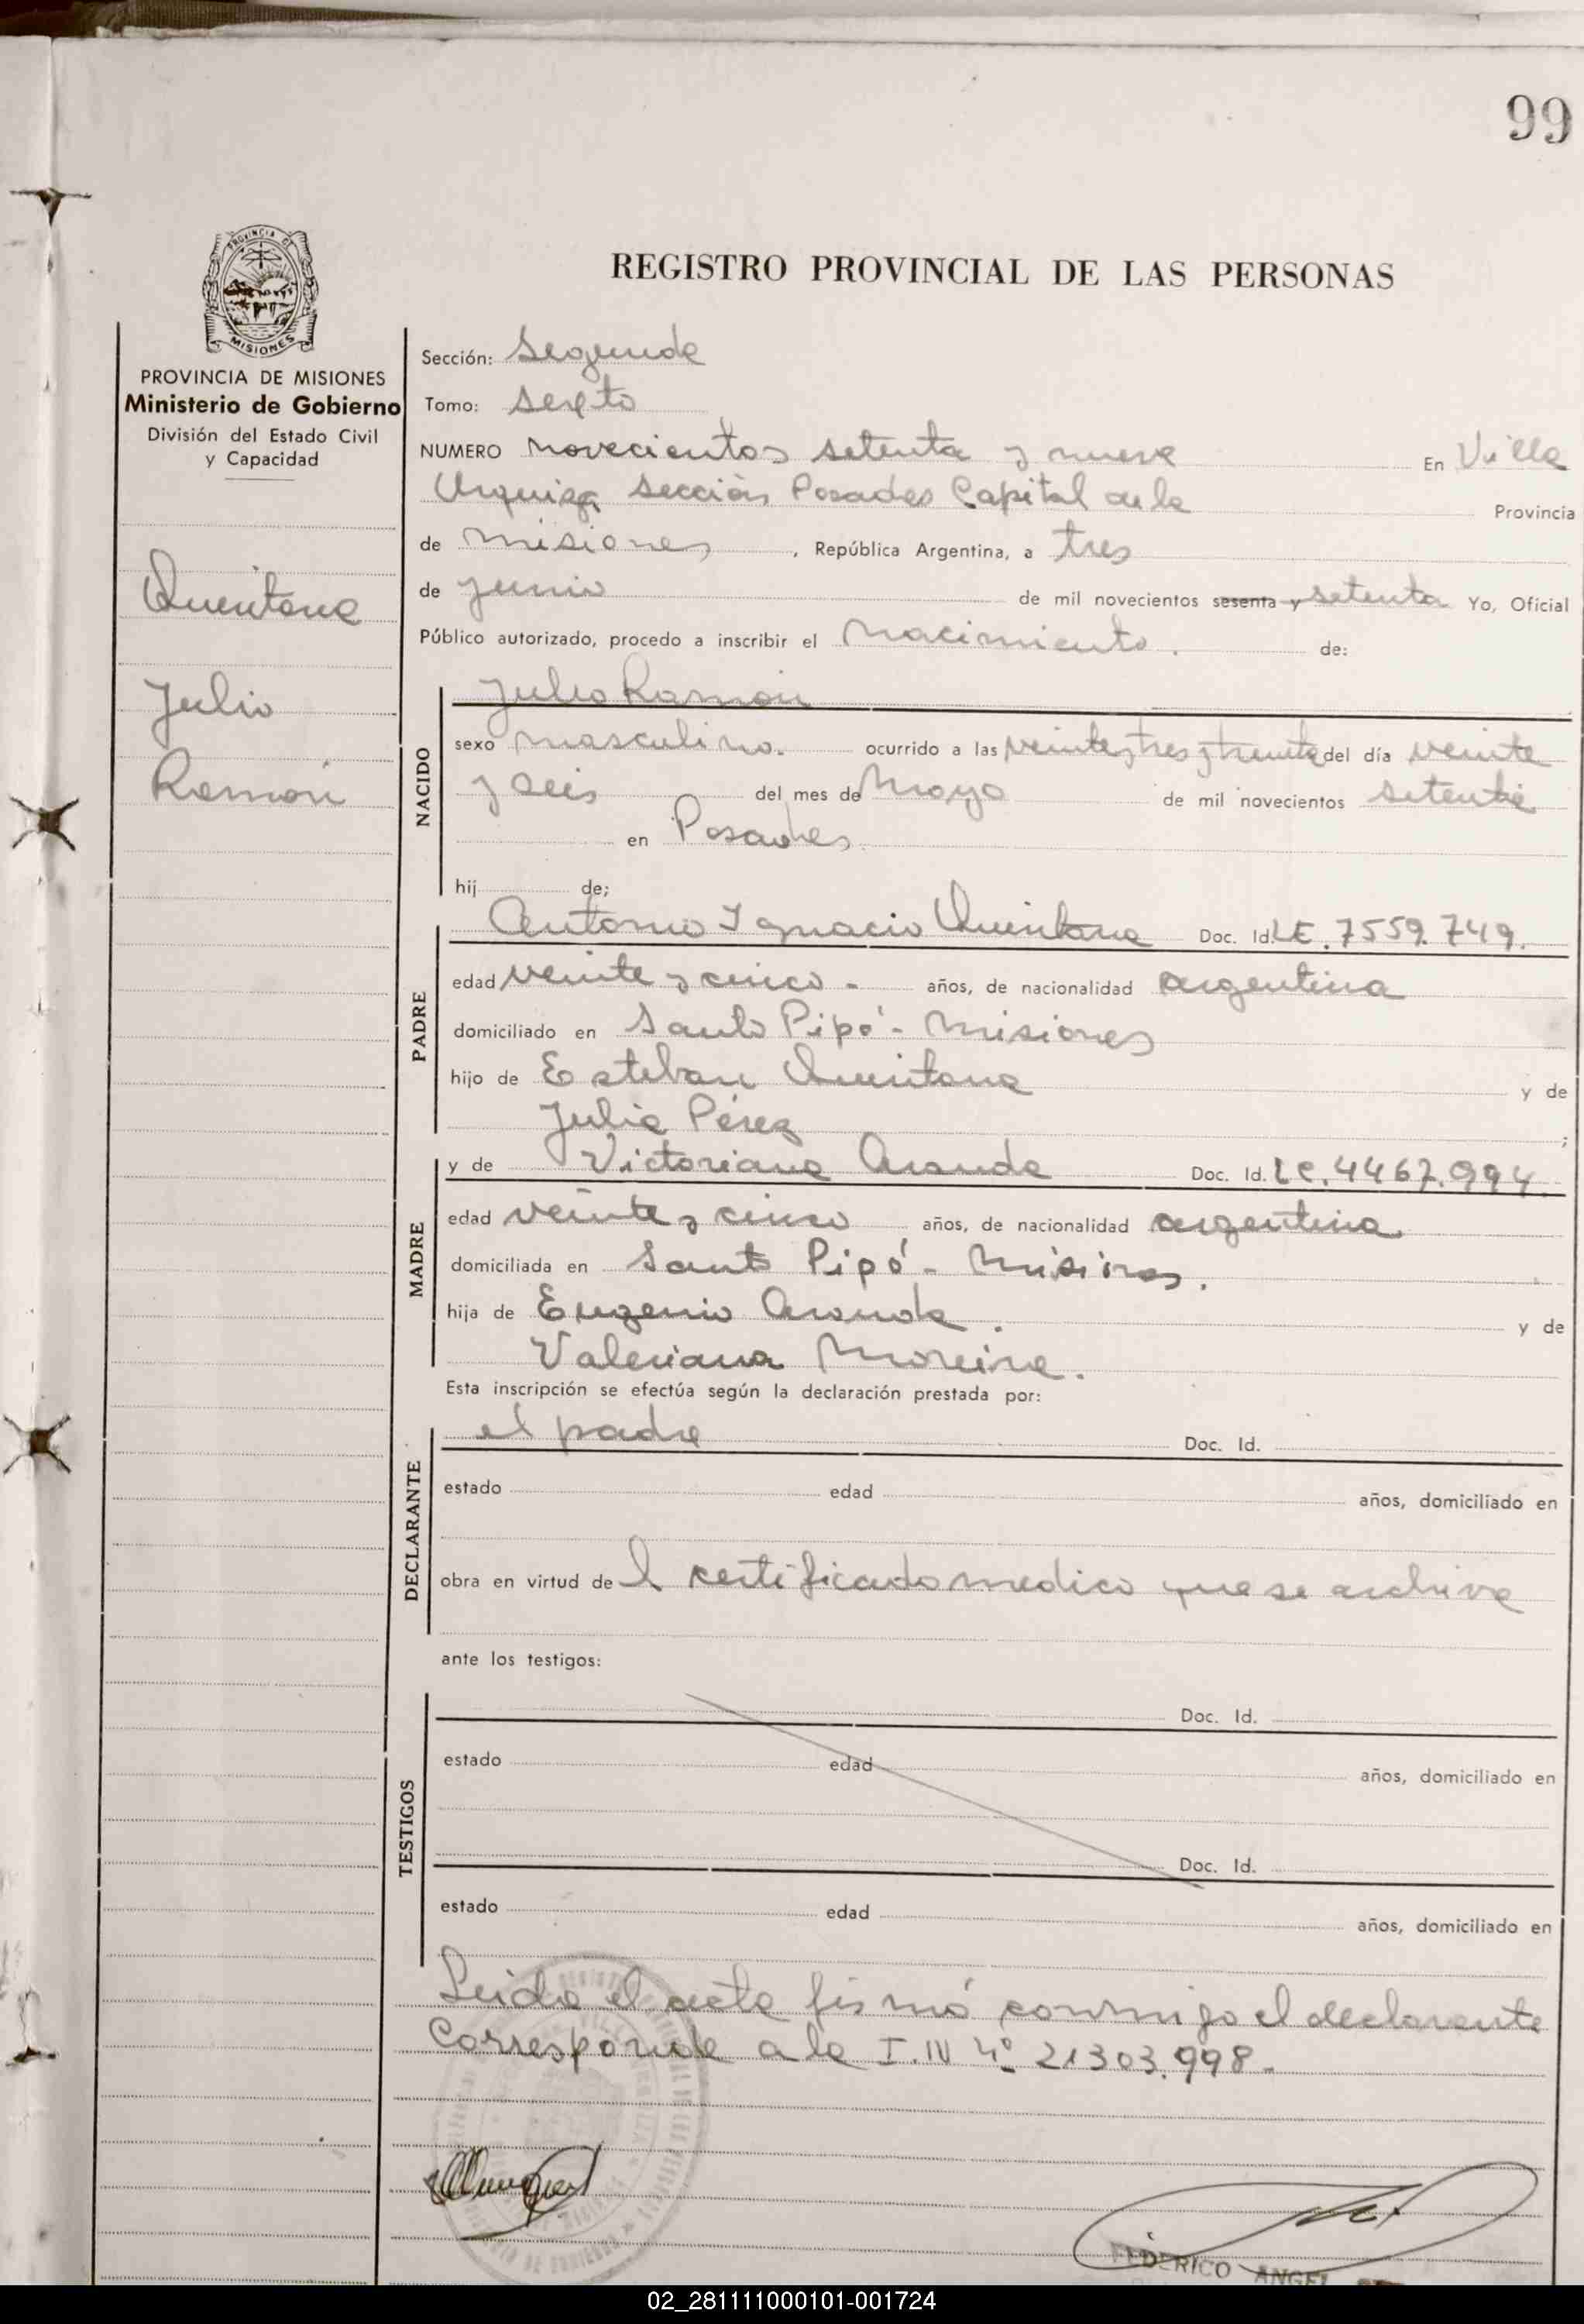 99
PROVINCIA DE
MISIONES
REGISTRO PROVINCIAL DE LAS PERSONAS
PROVINCIA DE MISIONES
Ministerio de Gobierno
División del Estado Civil
y Capacidad
Quintana
Julio
Ramón
Sección: Segunda
Tomo: Sexto
NUMERO Novecientos setenta y nueve En Villa
Urquiza Sección Posadas Capital de la Provincia
de Misiones, República Argentina, a tres
de junio de mil novecientos sesenta y setenta Yo, Oficial
Público autorizado, procedo a inscribir el Nacimiento. de:
NACIDO
Julio Ramón
sexo masculino. ocurrido a las veinte y tres y treinta del día veinte
y seis del mes de Mayo de mil novecientos setenta
en Posadas
hij de;
PADRE
Antonio Ignacio Quintana Doc. Id. LE. 7559.749.
edad veinte y cinco - años, de nacionalidad argentina
domiciliado en Santo Pipó - Misiones
hijo de Esteban Quintana y de
Julia Pérez ;
MADRE
y de Victoriana Aranda Doc. Id. LC. 4467.994
edad veinte y cinco años, de nacionalidad argentina
domiciliada en Santo Pipó - Misiones.
hija de Eugenio Aranda. y de
Valeriana Moreira.
Esta inscripción se efectúa según la declaración prestada por:
DECLARANTE
el padre Doc. Id.
estado edad años, domiciliado en
obra en virtud del certificado medico que se archiva
ante los testigos:
TESTIGOS
Doc. Id.
estado edad años, domiciliado en
Doc. Id.
estado edad años, domiciliado en
Leida el acta firmó conmigo el declarante
Corresponde a la I. N 4º 21303.998.
FEDERICO ANGEL
02_281111000101-001724